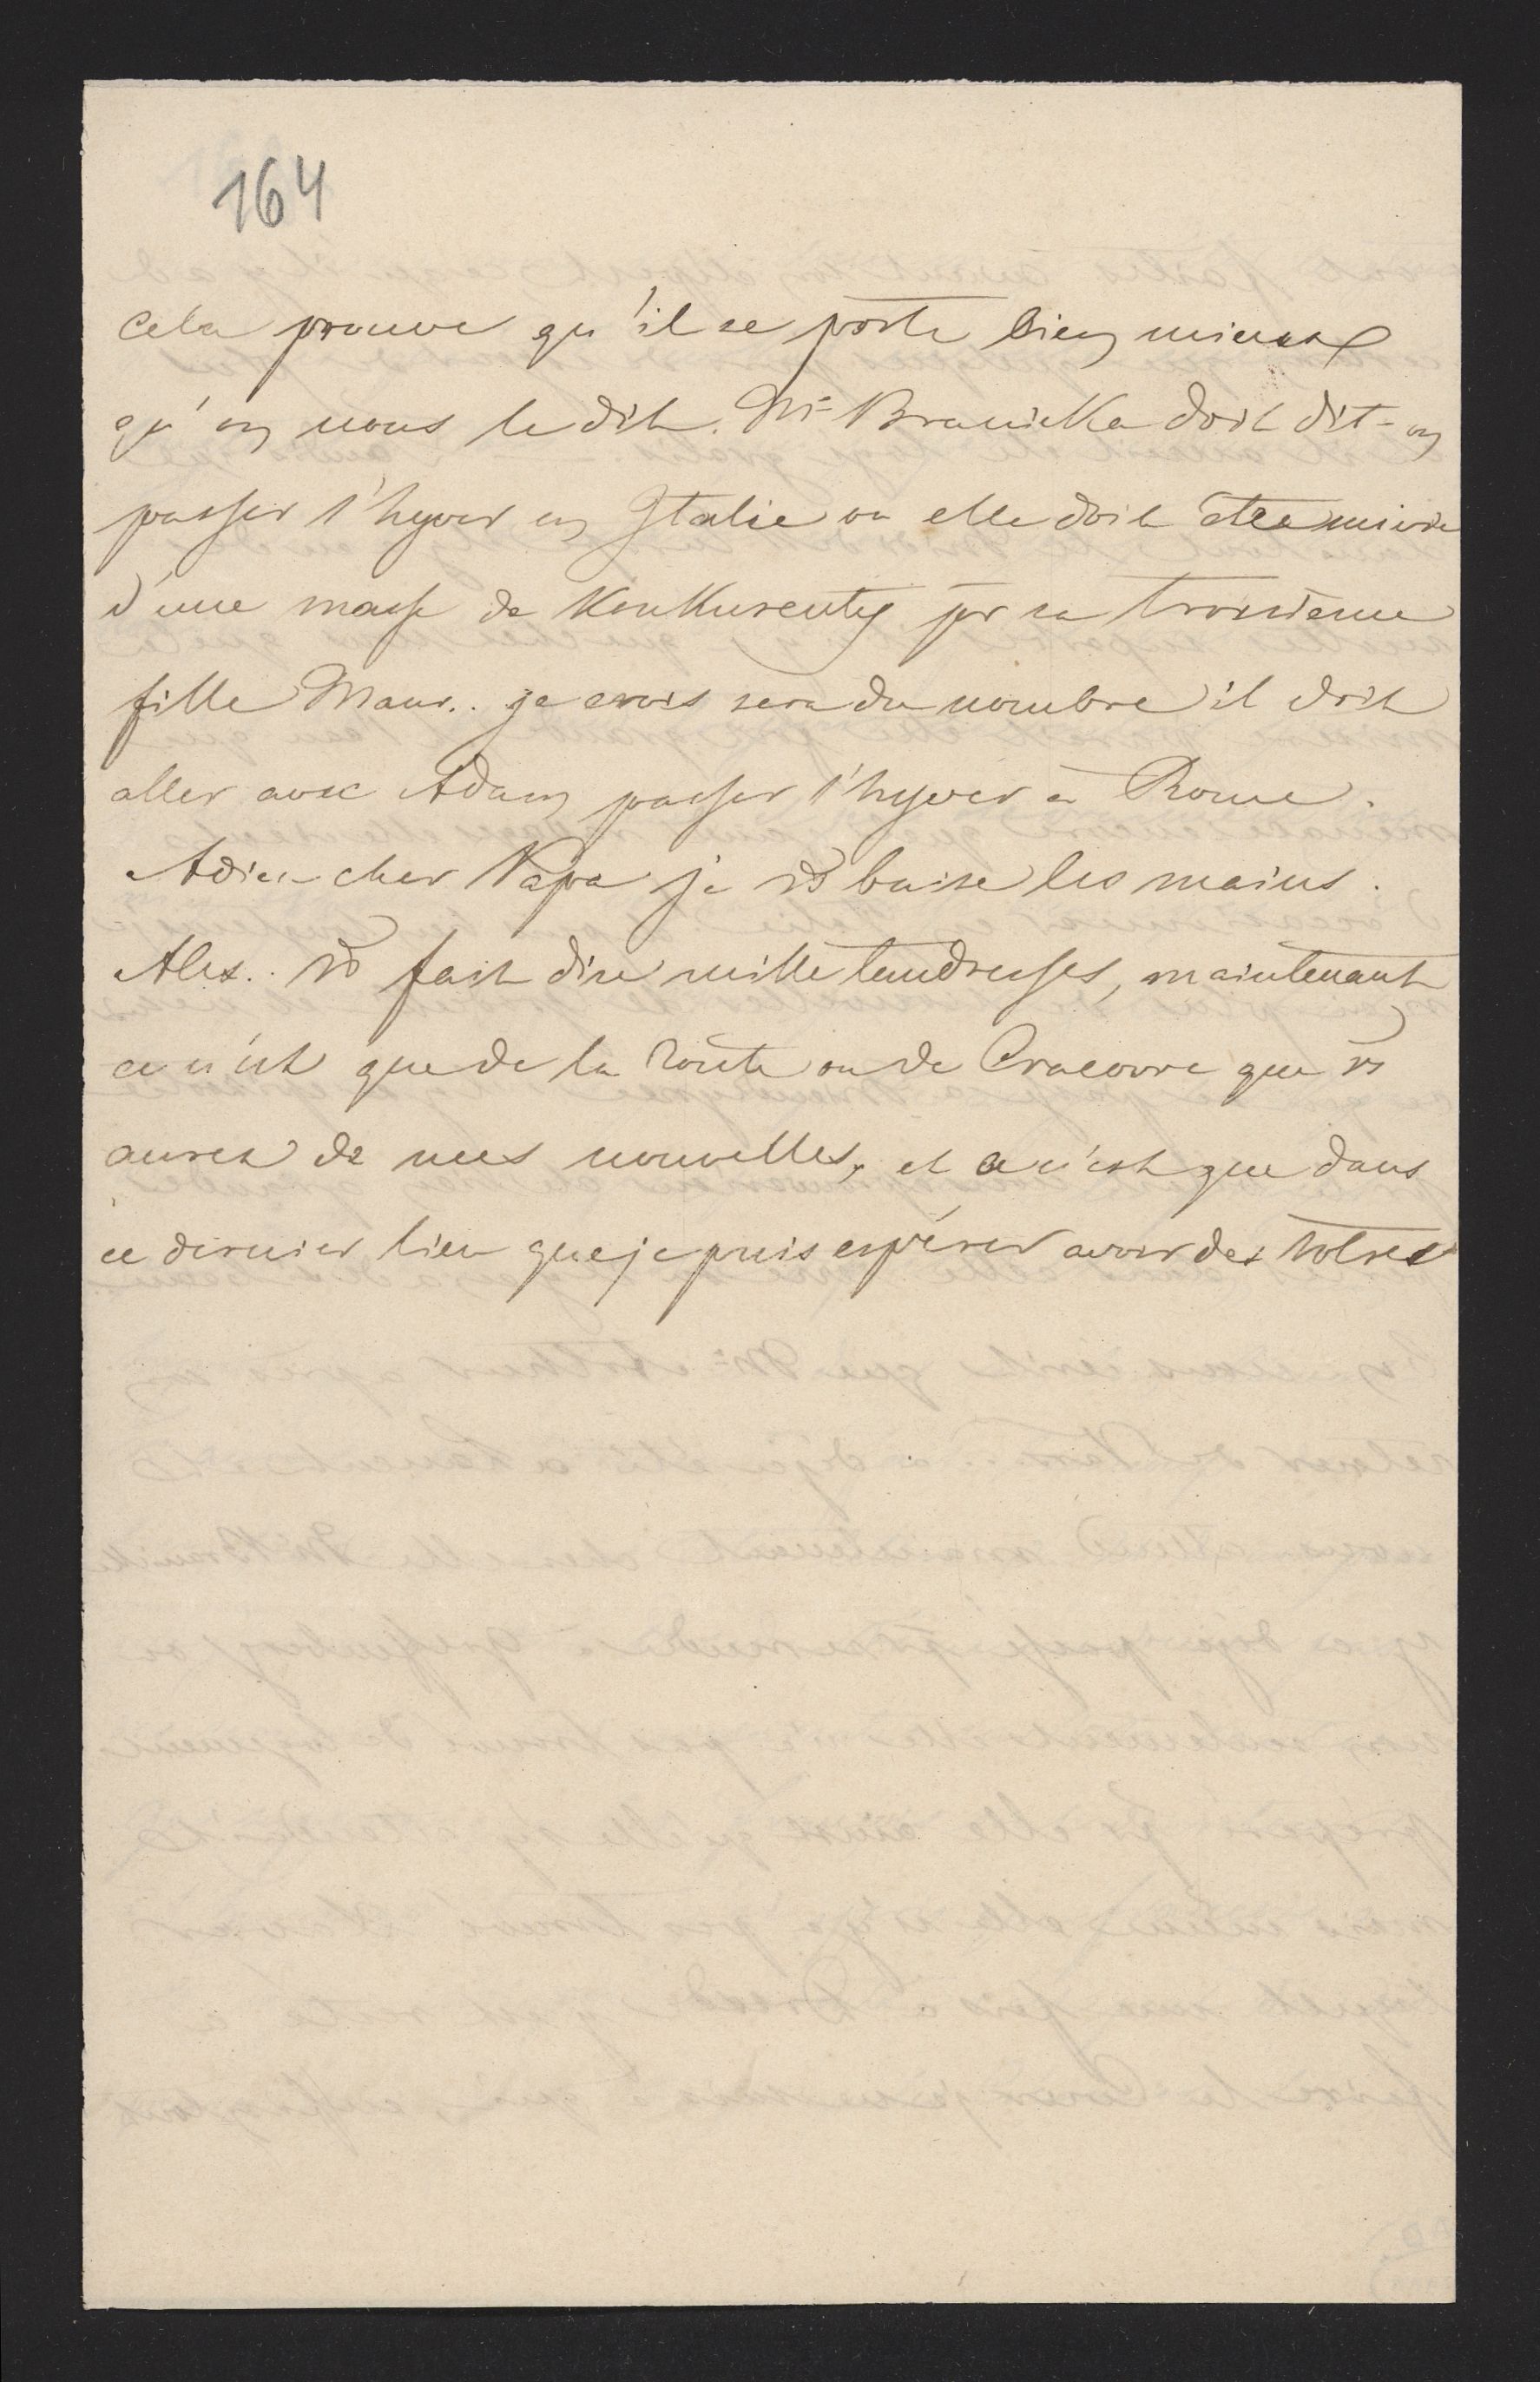 164
cela prouve qu'il se porte bien mieux
qu'on nous le dit. Me Branicka doit dit-on
passer l'hyver en Italie ou elle doit être suivie
d'une masse de Konkurenty pr sa troisième
fille Maur.. je crois sera du nombre il doit
aller avec Adam passer l'hyver à Rome.
Adieu cher Papa je vs baise les mains.
Alex.. vs fait dire mille tendresses, maintenant
ce n'est que de la route ou de Cracovie que vs
aurez de mes nouvelles, et ce n'est que dans
ce dernier lieu que je puis espérer avoir des votres